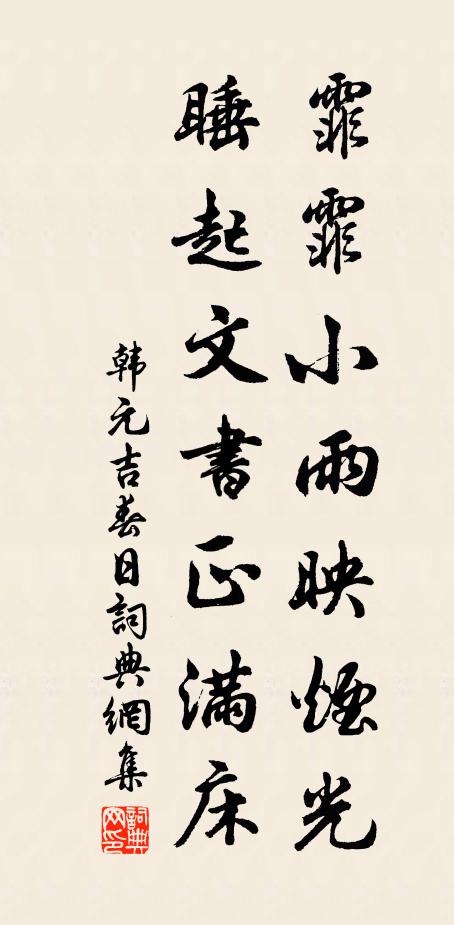 霏霏小雨映煙光
睡起文書正滿床
韩元吉春日詞典網集
詞典网印